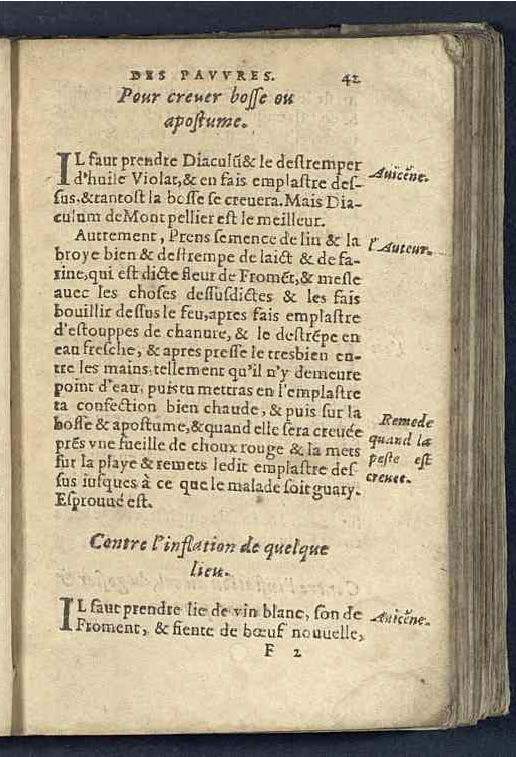 DES PAVVRES. 42
Pour creuer bosse ou
apostume.
IL faut prendre Diaculū & le destremper
d'huile Violat, & en fais emplastre des-
sus, & tantost la bosse se creuera. Mais Dia-
culum de Montpellier est le meilleur.
Auicēne.
Autrement, Prens semence de lin & la
broye bien & destrempe de laict & de fa-
rine, qui est dicte fleur de Fromēt, & mesle
auec les choses dessusdictes & les fais
bouillir dessus le feu, apres fais emplastre
d'estouppes de chanure, & le destrēpe en
eau fresche, & apres presse le tresbien en-
tre les mains, tellement qu'il n'y demeure
point d'eau, puis tu mettras en l'emplastre
ta confection bien chaude, & puis sur la
bosse & apostume, & quand elle sera creuée
prés vne fueille de choux rouge & la mets
sur la playe & remets ledit emplastre des
sus iusques à ce que le malade soit guary.
Esprouué est.
l'Auteur.
Remede
quand la
peste est
creuee.
Contre l'inflation de quelque
lieu.
IL faut prendre lie de vin blanc, son de
Froment, & fiente de bœuf nouuelle,
Auicēne.
F 2